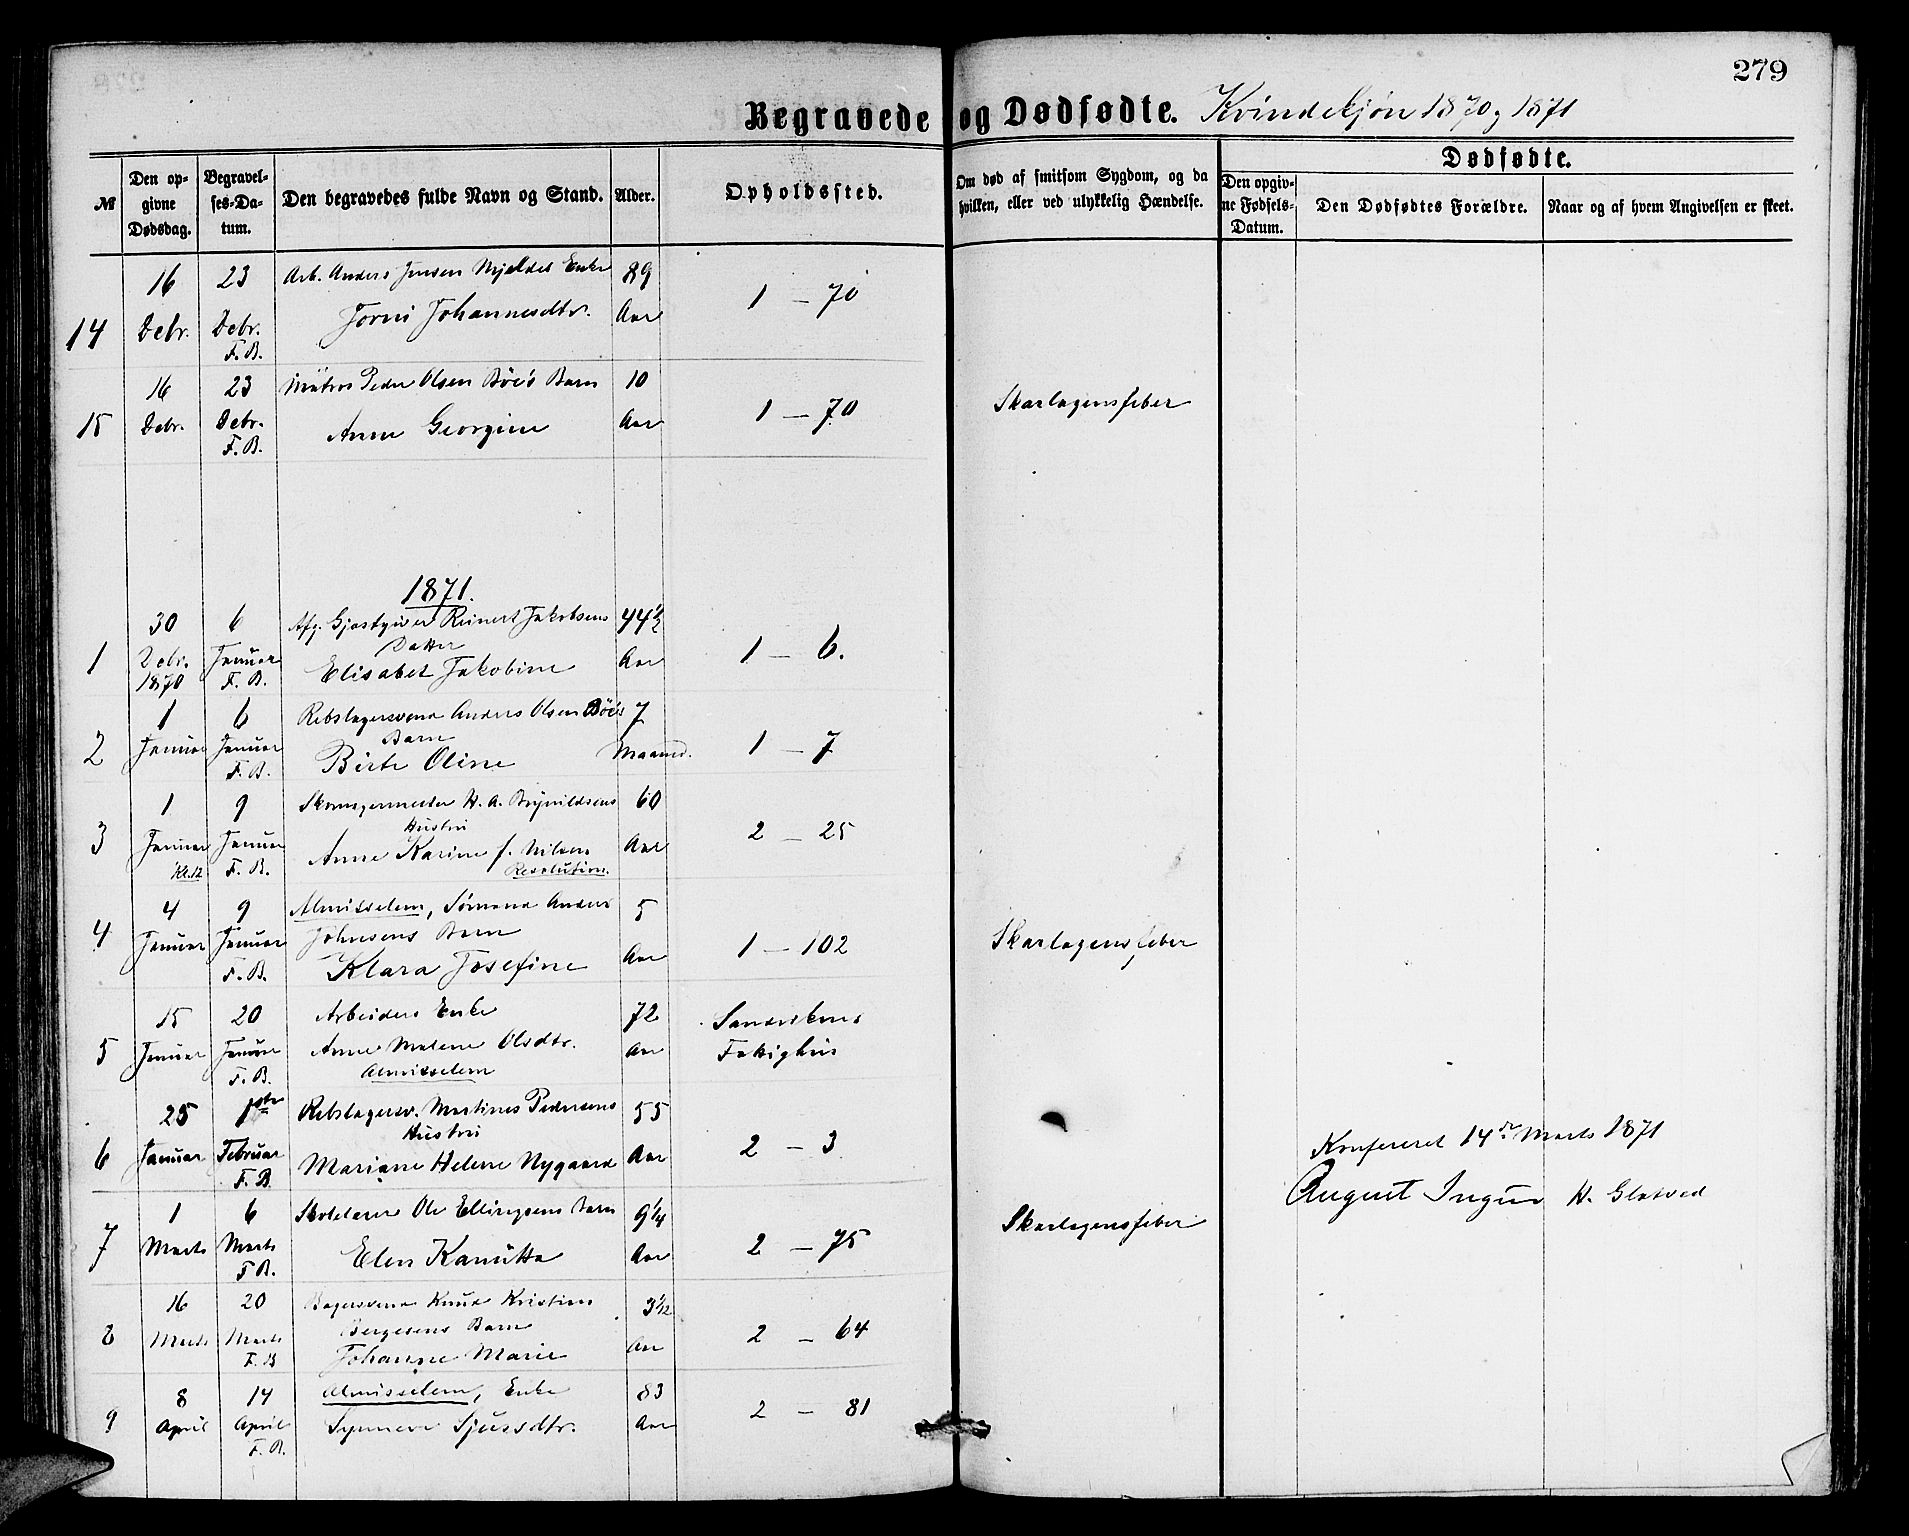 279
Begravede og Dødfødte. Kvindekjøn 1870 og 1871
№
Den opgivne Dødsdag.
Begravelses-Datum.
Den begravedes fulde Navn og Stand.
Alder.
Opholdssted.
Om død af smitsom Sygdom, og da hvilken, eller ved ulykkelig Hændelse.
Dødfødte.
Den opgivne Fødsels-Datum.
Den Dødfødtes Forældre.
Naar og af hvem Angivelsen er skeet.
14 16 Debr. 23 Debr. F. B. Arb. Anders Jensen Mjeldes Enke 89 Aar 1 – 70
Jorni Johannesdtr.
15 16 Debr. 23 Debr. F. B. Matros Peder Olsen Böe's Barn 10 Aar 1 – 70 Skarlagensfeber
Anne Georgine
1871.
1 30 Debr. 1870 6 Januar F. B. Afg. Gjæstgiver Reinert Jakobsens 44½ Aar 1 – 6.
Datter
Elisabet Jakobine
2 1 Januar 6 Januar F. B. Rebslagersvend Anders Olsen Böe's 7 Maaned. 1 – 7
Barn
Birte Oline
3 1 Januar Kl. 12 9 Januar F. B. Skomagermester H. A. Brynildsens 60 Aar 2 – 25
Hustru
Anne Karine f. Nilsen
Resolution.
4 4 Januar 9 Januar F. B. Almisselem, Sömand Anders 5 Aar 1 – 102 Skarlagensfeber
Johnsens Barn
Klara Josefine
5 15 Januar 20 Januar F. B. Arbeiders Enke 72 Aar Sandvikens Fatighus
Anne Malene Olsdtr.
Almisselem
6 25 Januar 1ste Februar F. B. Rebslagersv. Martines Pedersens 55 Aar 2 – 3
Hustru
Mariane Helene Nygaard
Konfereret 14de Marts 1871
August Ingier H. Glatved
7 1 Marts 6 Marts F. B. Skolelærer Ole Ellingsens Barn 9¼ Aar 2 – 75 Skarlagensfeber
Elen Kanutta
8 16 Marts 20 Marts F. B. Bagersvend Knud Kristian 3 1/12 Aar 2 – 64
Bergesens Barn
Johanne Marie
9 8 April 14 April F. B. Almisselem, Enke 83 Aar 2 – 81
Synneve Sjursdtr.